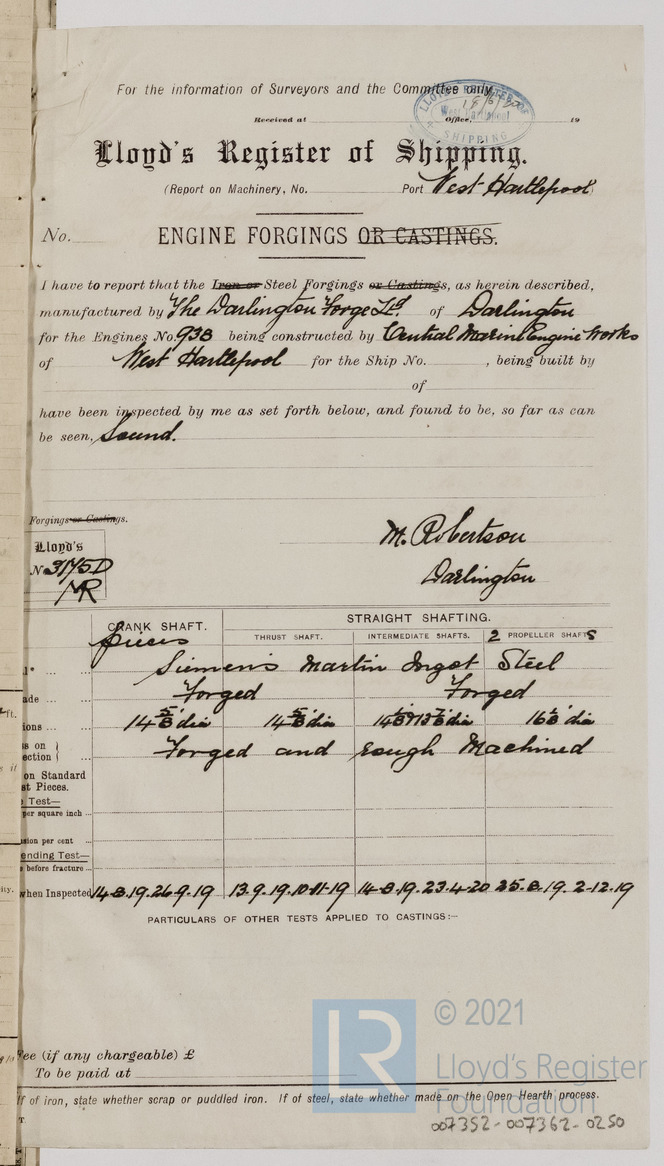 For the information of Surveyors and the Committee only.
LLOYD'S REGISTER OF
West Hartlepool
SHIPPING
Received at Office, 19
Lloyd's Register of Shipping.
(Report on Machinery, No. Port West Hartlepool)
No. ENGINE FORGINGS OR CASTINGS.
I have to report that the Iron or Steel Forgings or Castings, as herein described,
manufactured by The Darlington Forge Ltd. of Darlington
for the Engines No. 938 being constructed by Central Marine Engine Works
of West Hartlepool for the Ship No. , being built by
of
have been inspected by me as set forth below, and found to be, so far as can
be seen, Sound.
Forgings or Castings.
M. Robertson
Lloyd's
No 3175D
MR
Darlington
CRANK SHAFT. STRAIGHT SHAFTING.
pieces THRUST SHAFT. INTERMEDIATE SHAFTS. 2 PROPELLER SHAFTS
Siemens Martin Ingot Steel
ade ... Forged Forged
ions ... 14 5/8" dia 14 5/8" dia dia 16 dia
s on
ection Forged and rough Machined
on Standard
st Pieces.
Test—
per square inch ...
sion per cent ...
ending Test—
before fracture ...
when Inspected 14-8-19. 26-9-19 13-9-19. 10-11-19 14-8-19. 23-4-20 25-8-19. 2-12-19
PARTICULARS OF OTHER TESTS APPLIED TO CASTINGS:—
Fee (if any chargeable) £
To be paid at
If of iron, state whether scrap or puddled iron. If of steel, state whether made on the Open Hearth process.
LR
© 2021
Lloyd's Register
Foundation
007352-007362-0250